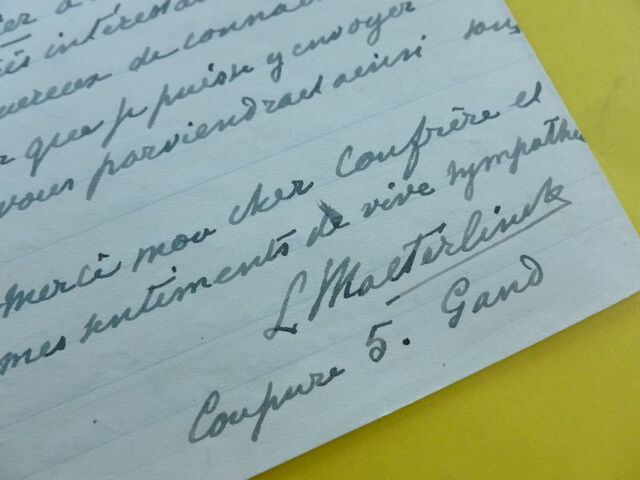 ier a
is intéressa
de connai
que je puisse y envoyer
vous parviendrait ainsi sous
Merci mon cher Confrère et
mes sentiments de vive sympathie
L Maeterlinck
Coupure 5. Gand